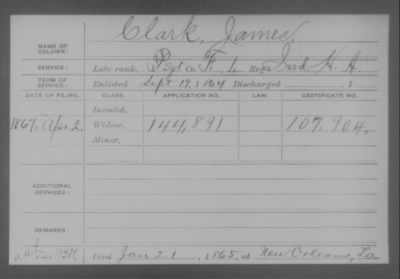 NAME OF SOLDIER: Clark, James.
SERVICE: Late rank, Co. F, Reg't Ind. H. A.
TERM OF SERVICE: Enlisted Sept 19, 1864 Discharged , 1
DATE OF FILING. CLASS. APPLICATION NO. LAW. CERTIFICATE NO.
Invalid,
1867, Apr. 2, Widow, 144,891 107,904,
Minor,
ADDITIONAL SERVICES:
REMARKS:
Died Jan 21, 1865, at New Orleans, La